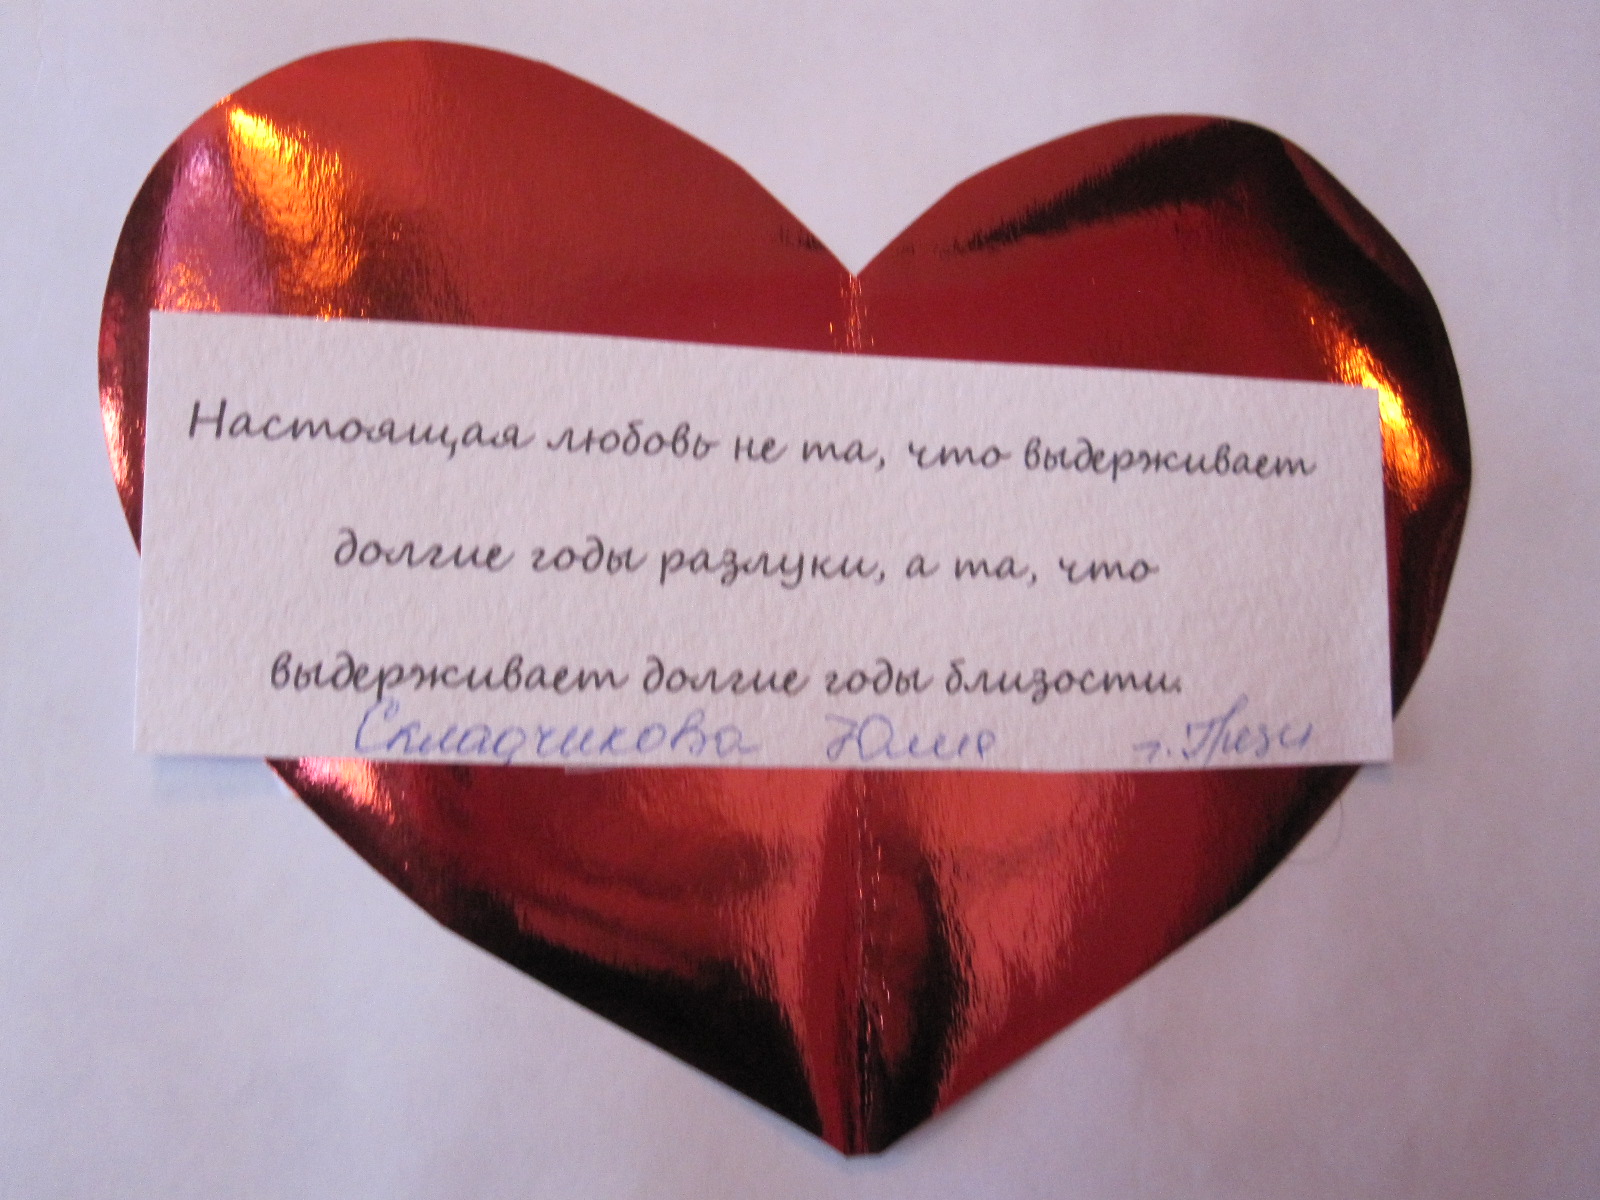 Настоящая любовь не та, что выдерживает
долгие годы разлуки, а та, что
выдерживает долгие годы близости.
Складчикова Юлия г. Грязи